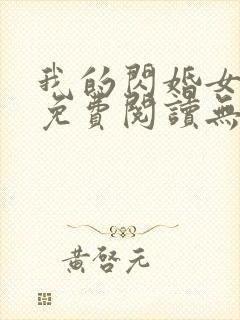 我的閃婚女
免費閱讀無
黃啓元